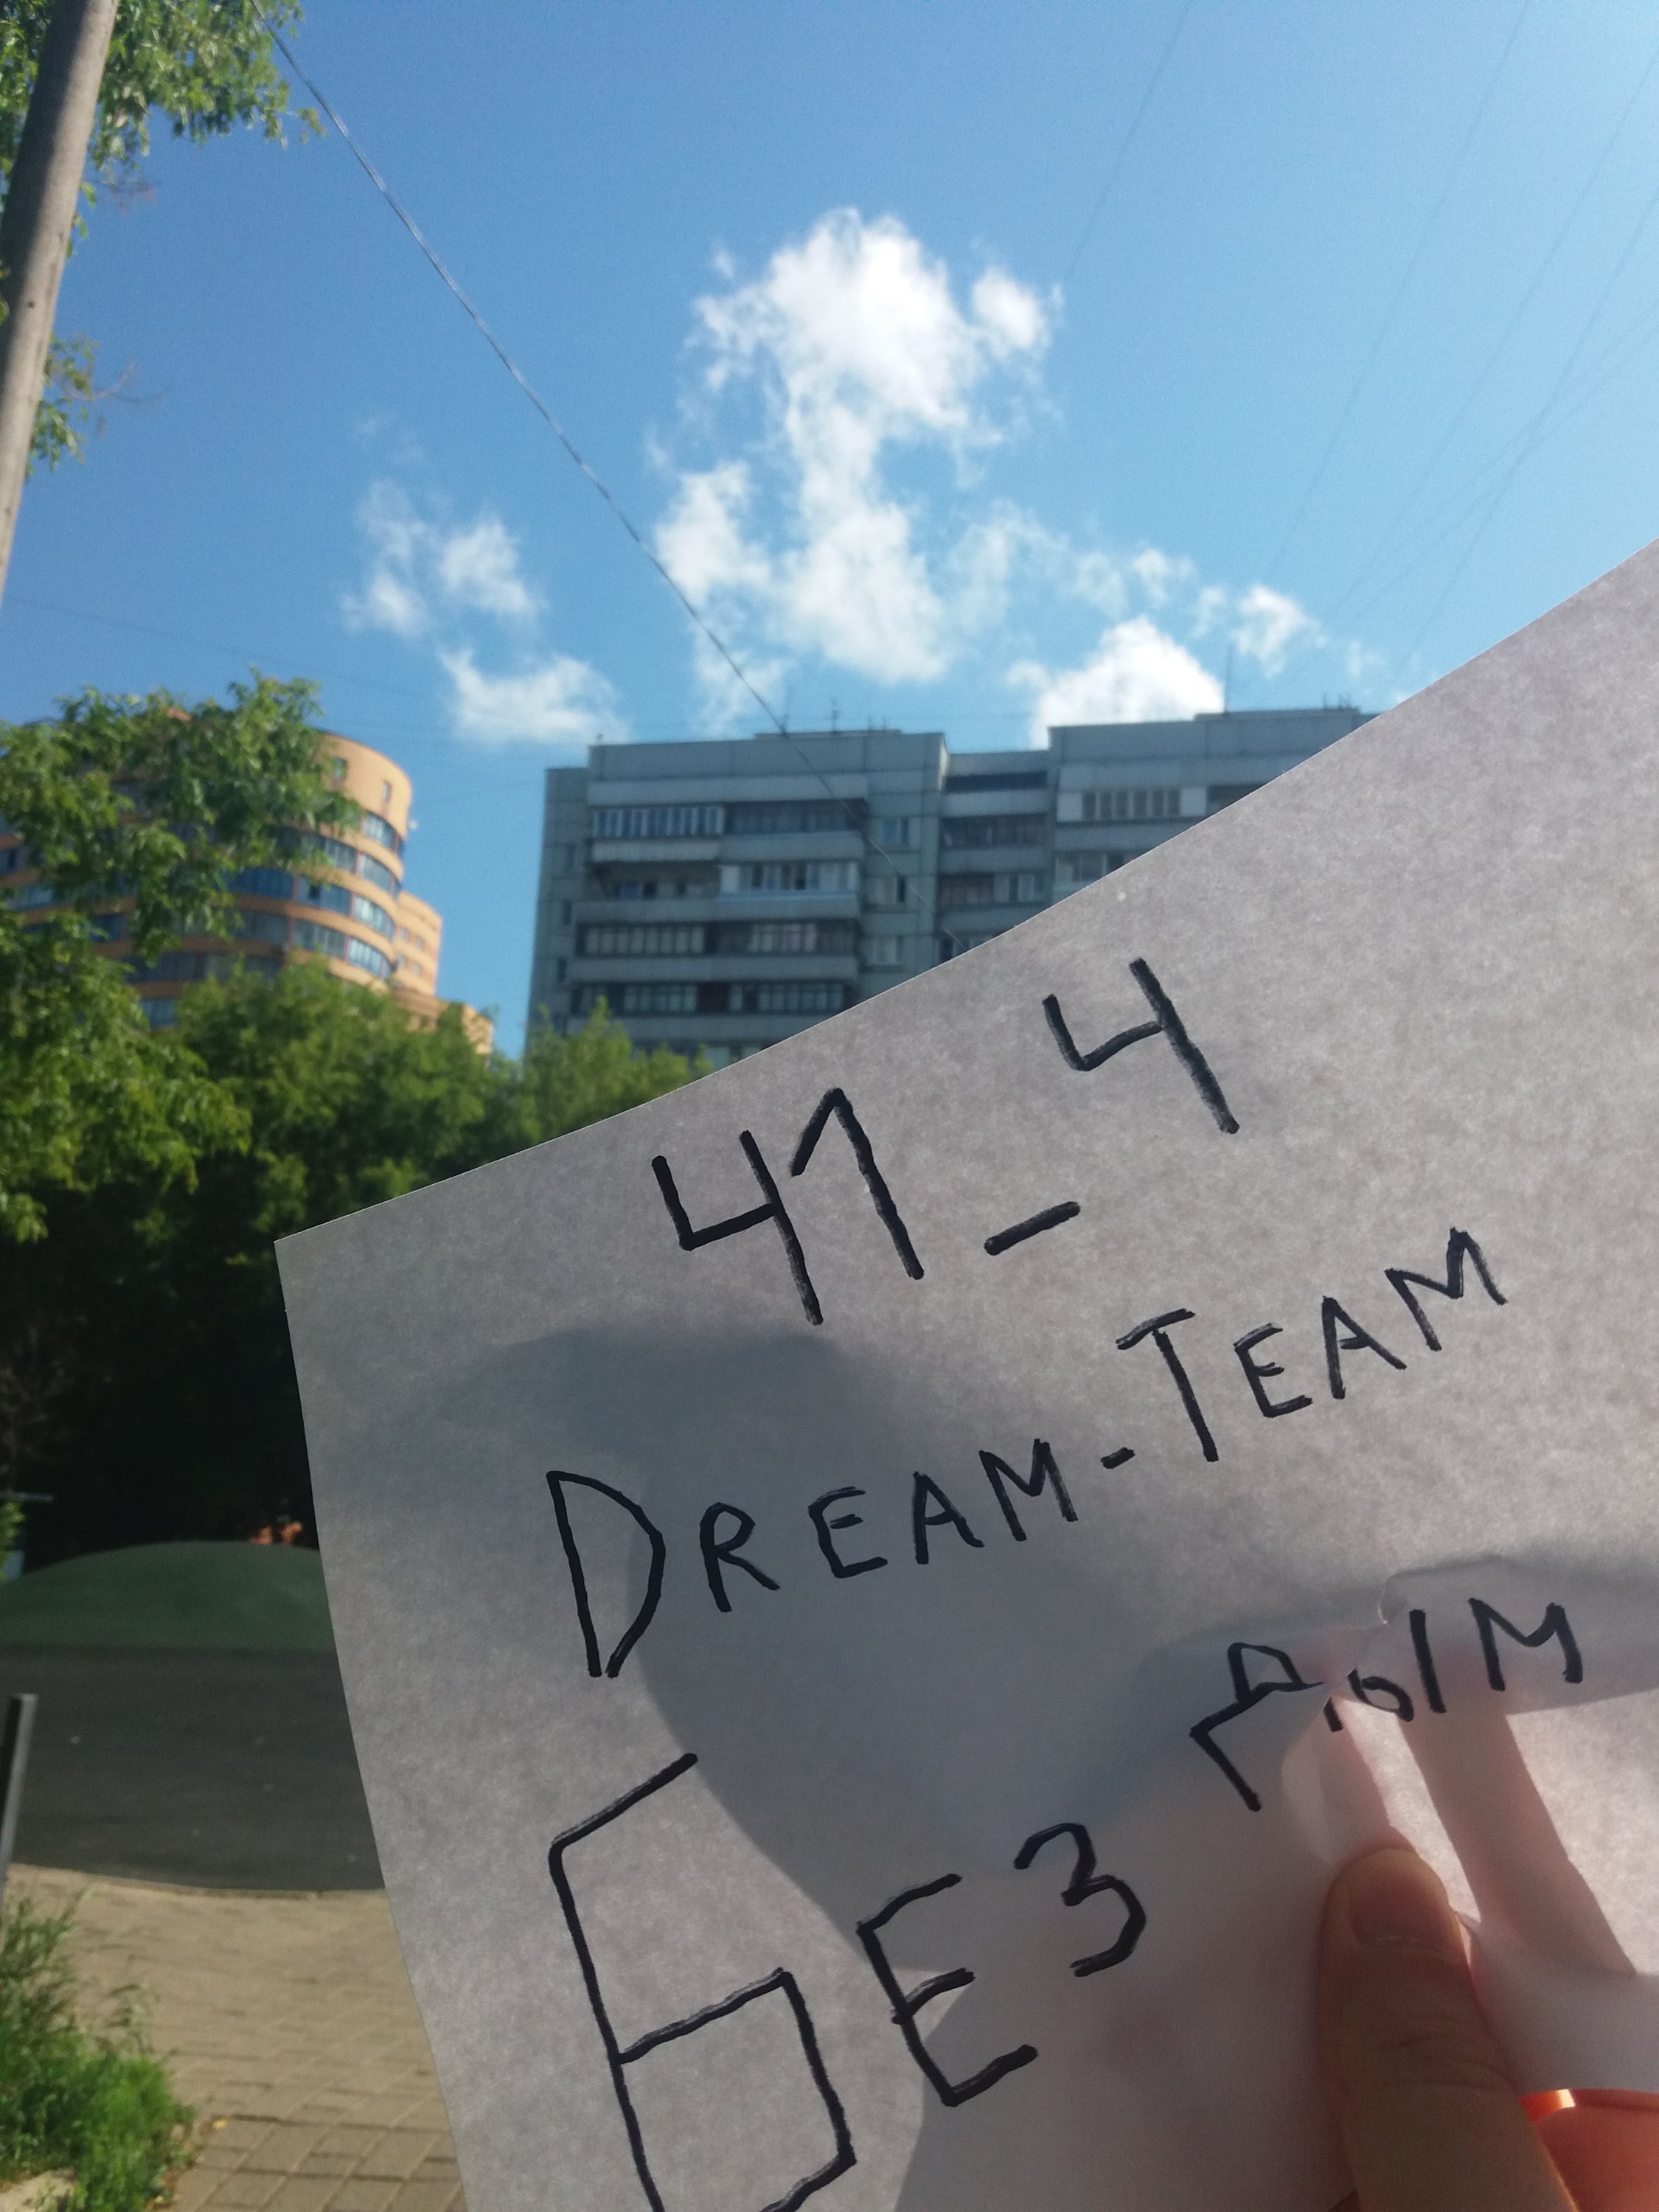 41-4
DREAM-TEAM
БЕЗ ДЫМ